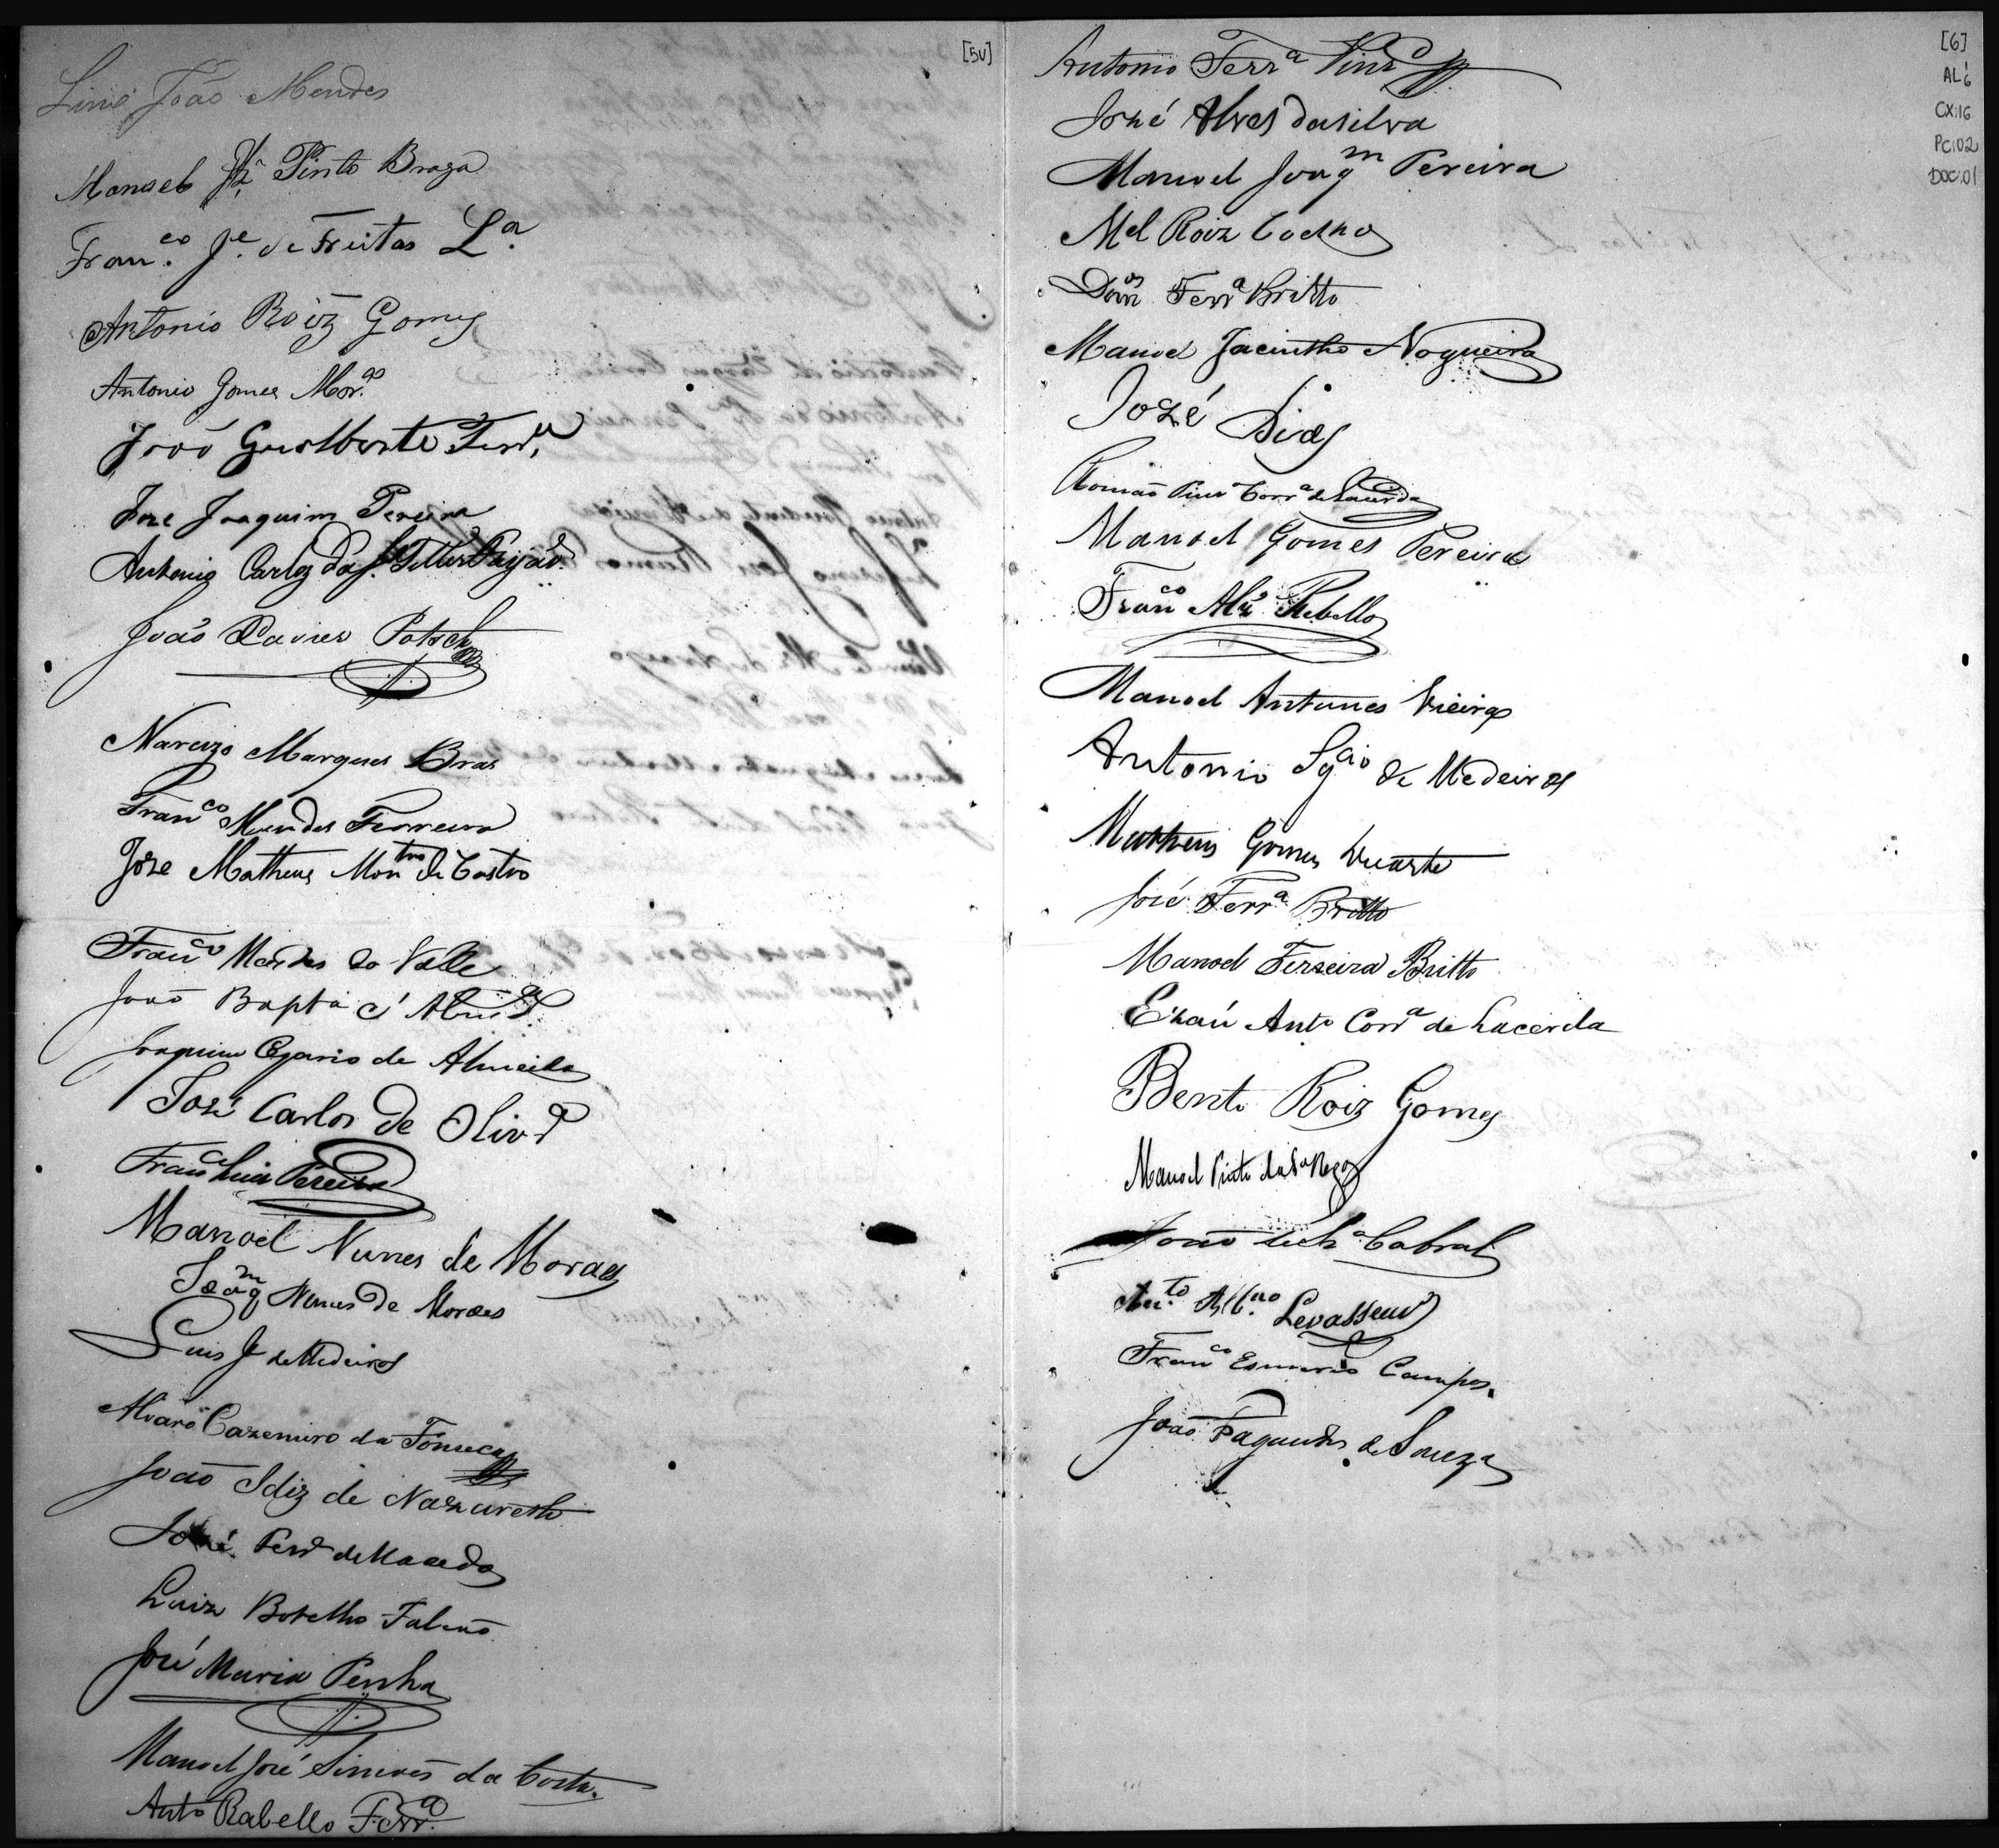 [5v]
João Mendes
Manoel Pinto Braga
Franco. Je. de Freitas La.
Antonio Roiz Gomes
Antonio Gomes
João Gualberto
Jose Joaquim Pereira
Antonio Carlos da
João Xavier
Narcizo Marques Bras
Franco Mendes Ferreira
Joze Matheus de Castro
Franco Mendes do Valle
João Bapta d'
Joaquim de Almeida
José Carlos de Olivra
Franco Luis Pereira
Manoel Nunes de Moraes
Joaqm Nunes de Moraes
Luis Je de Medeiros
Alvaro Cazemiro da Fonseca
João de Nazareth
José Perra de Macedo
Luiz Botelho Falcão
José Maria Penha
Manoel José Simões da Costa.
Anto Rabello Ferra.
[6]
AL:6
CX:16
PC:02
DOC:01
Antonio Ferra
José Alves da Silva
Manoel Joaqm Pereira
Mel Roiz Coelho
Domos Ferra Britto
Manoel Jacintho Nogueira
José Dias
Romão Corra de Lacerda
Manoel Gomes Pereira
Franco Alz Rebello
Manoel Antunes Vieira
Antonio Igcio de Medeiros
Matheus Gomes Duarte
José Ferra Britto
Manoel Ferreira Britto
Ezaú Anto Corra de Lacerda
Bento Roiz Gomes
Manoel Pinto da Sa
João Cabral
Anto. Levasseur
Franco Campos.
João Fagundes de Souza